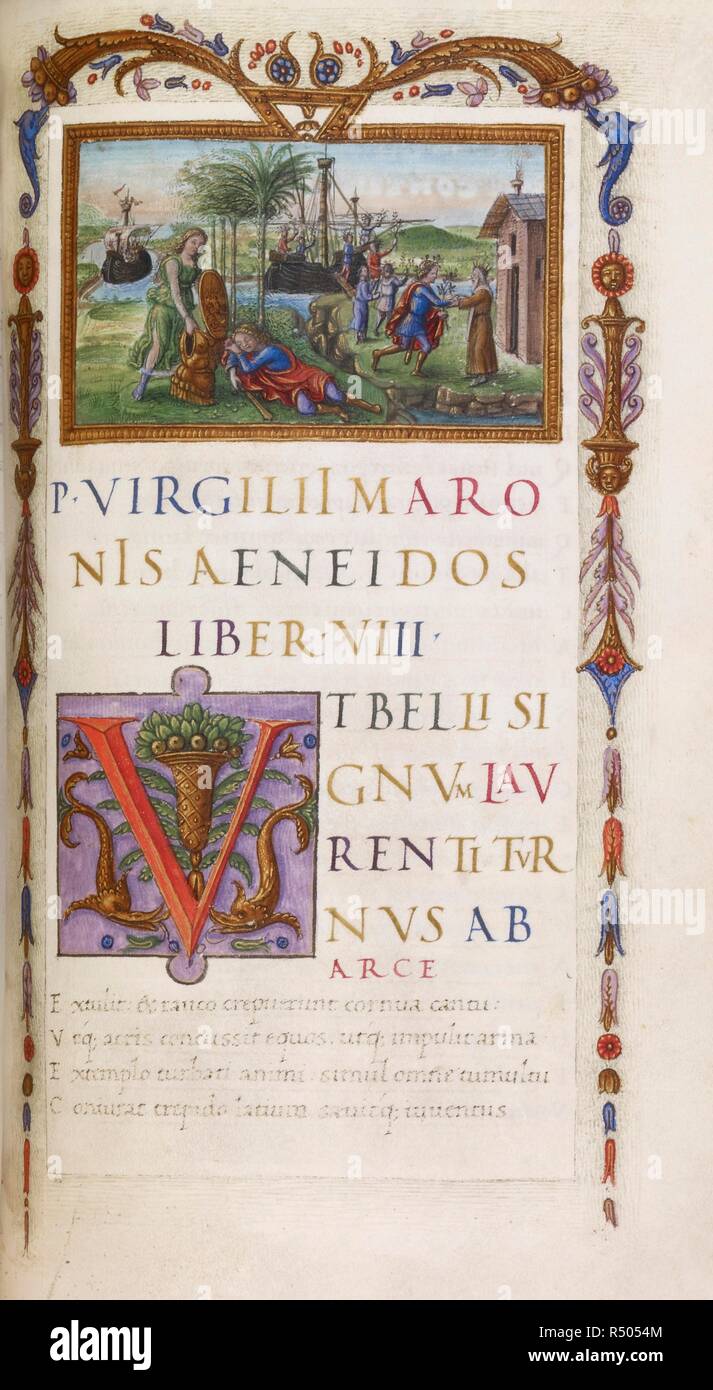 P · VIRGILII MARO
NIS AENEIDOS
LIBER · VIII ·
VT BELLI SI
GNVM LAV
RENTI TVR
NVS AB
ARCE
Extulit: & rauco crepuerunt cornua cantu:
Vtq; acris concussit equos. utq; impulit arma
Extemplo turbati animi: simul omne tumultu
Coniurat trepido latium. sæuitq; iuuentus
alamy
Image ID: R5054M
www.alamy.com